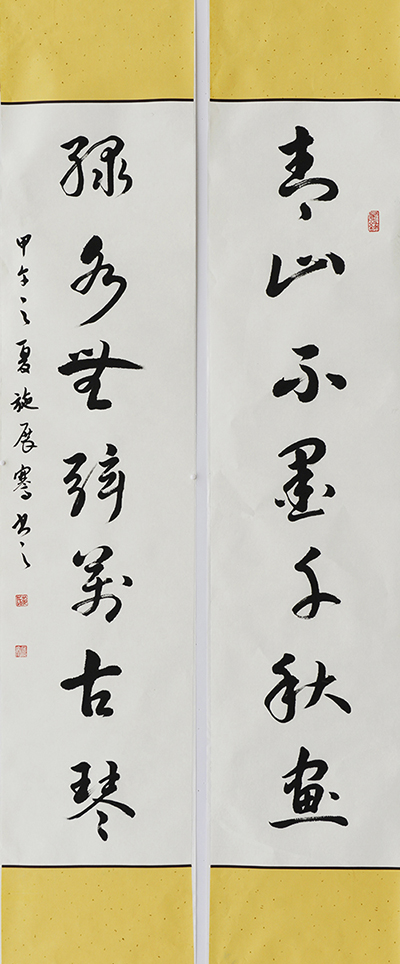 青山不墨千秋画
緑水無弦萬古琴
甲午之夏施展骞书之